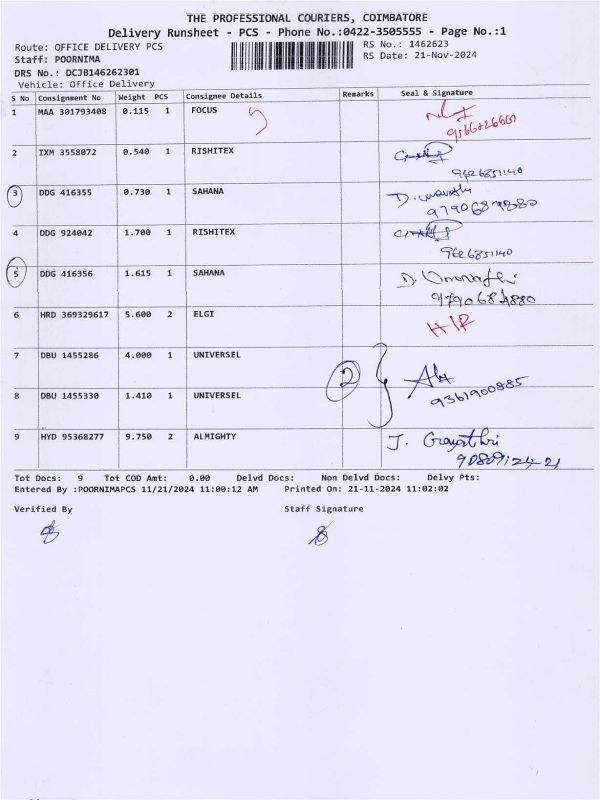 THE PROFESSIONAL COURIERS, COIMBATORE
Delivery Runsheet - PCS - Phone No.:0422-3505555 - Page No.:1
Route: OFFICE DELIVERY PCS RS No.: 1462623
Staff: POORNIMA RS Date: 21-Nov-2024
DRS No.: DCJB146262301
Vehicle: Office Delivery
S No Consignment No Weight PCS Consignee Details Remarks Seal & Signature
1 MAA 301793408 0.115 1 FOCUS
2 IXM 3558072 0.540 1 RISHITEX
9626851140
3 DDG 416355 0.730 1 SAHANA
4 DDG 924042 1.700 1 RISHITEX
9626851140
5 DDG 416356 1.615 1 SAHANA
6 HRD 369329617 5.600 2 ELGI
7 DBU 1455286 4.000 1 UNIVERSEL
2
8 DBU 1455330 1.410 1 UNIVERSEL
9361900885
9 HYD 95368277 9.750 2 ALMIGHTY J. Gayathri
Tot Docs: 9 Tot COD Amt: 0.00 Delvd Docs: Non Delvd Docs: Delvy Pts:
Entered By :POORNIMAPCS 11/21/2024 11:00:12 AM Printed On: 21-11-2024 11:02:02
Verified By Staff Signature